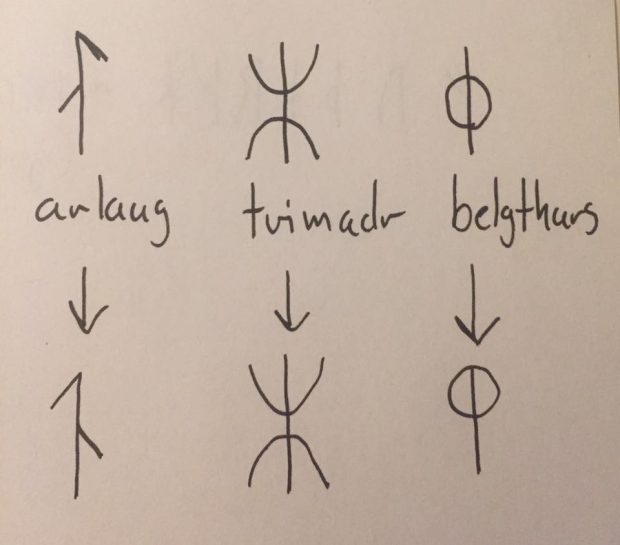 ᛮ ᛯ ᛰ
arlaug tvimadr belgthurs
↓ ↓ ↓
ᛮ ᛯ ᛰ